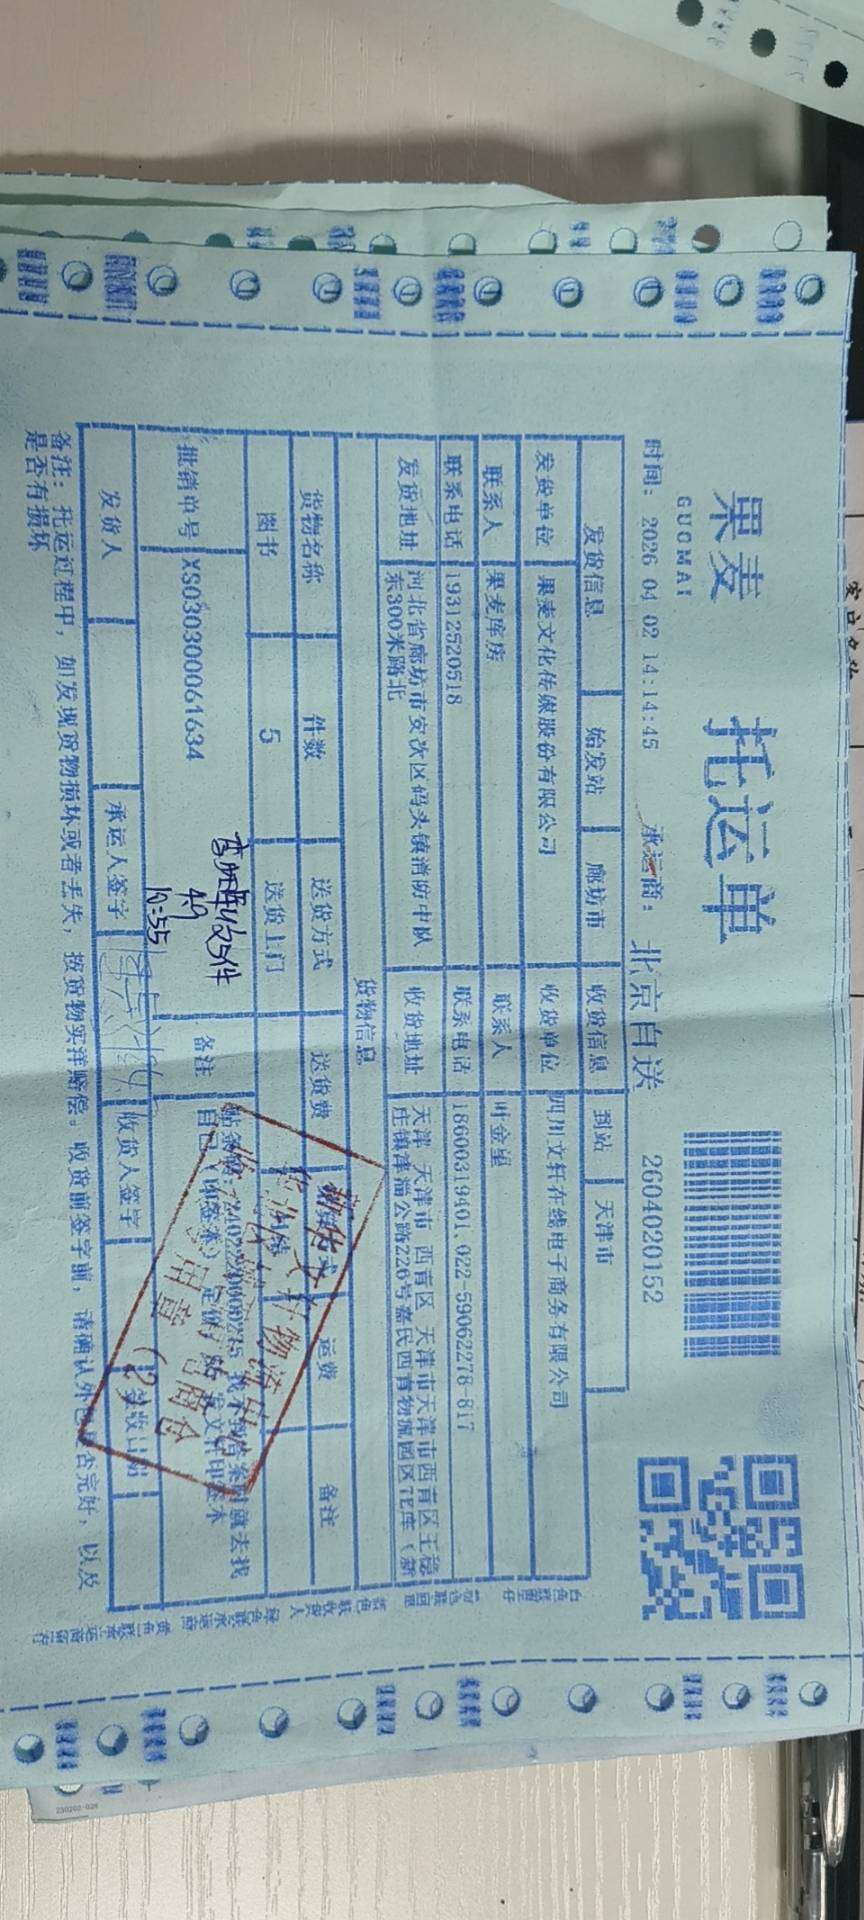 果麦 托运单
GUOMAI
时间: 2026 04 02 14:14:45 承运商: 北京自送 2604020152
发货信息 始发站 廊坊市 收货信息 到站 天津市
发货单位 果麦文化传媒股份有限公司 收货单位 四川文轩在线电子商务有限公司
联系人 果麦库房 联系人 叶金星
联系电话 19312520518 联系电话 18600319401、022-59062278-817
发货地址 河北省廊坊市安次区码头镇消防中队
东300米路北
收货地址 天津 天津市 西青区 天津市天津市西青区王稳
庄镇津淄公路226号嘉民西青物流园区7E库（新
货物信息
货物名称 件数 送货方式 送货费 运费 备注
图书 5 送货上门
批销单号 XS030300061634 备注
收5件
4.9
10:55
发货人 承运人签字 收货人签字
备注: 托运过程中，如发现货物损坏或者丢失，按货物实洋赔偿。收货前签字前，请确认外包是否完好，以及
是否有损坏
新华文轩物流
专用章
(2)